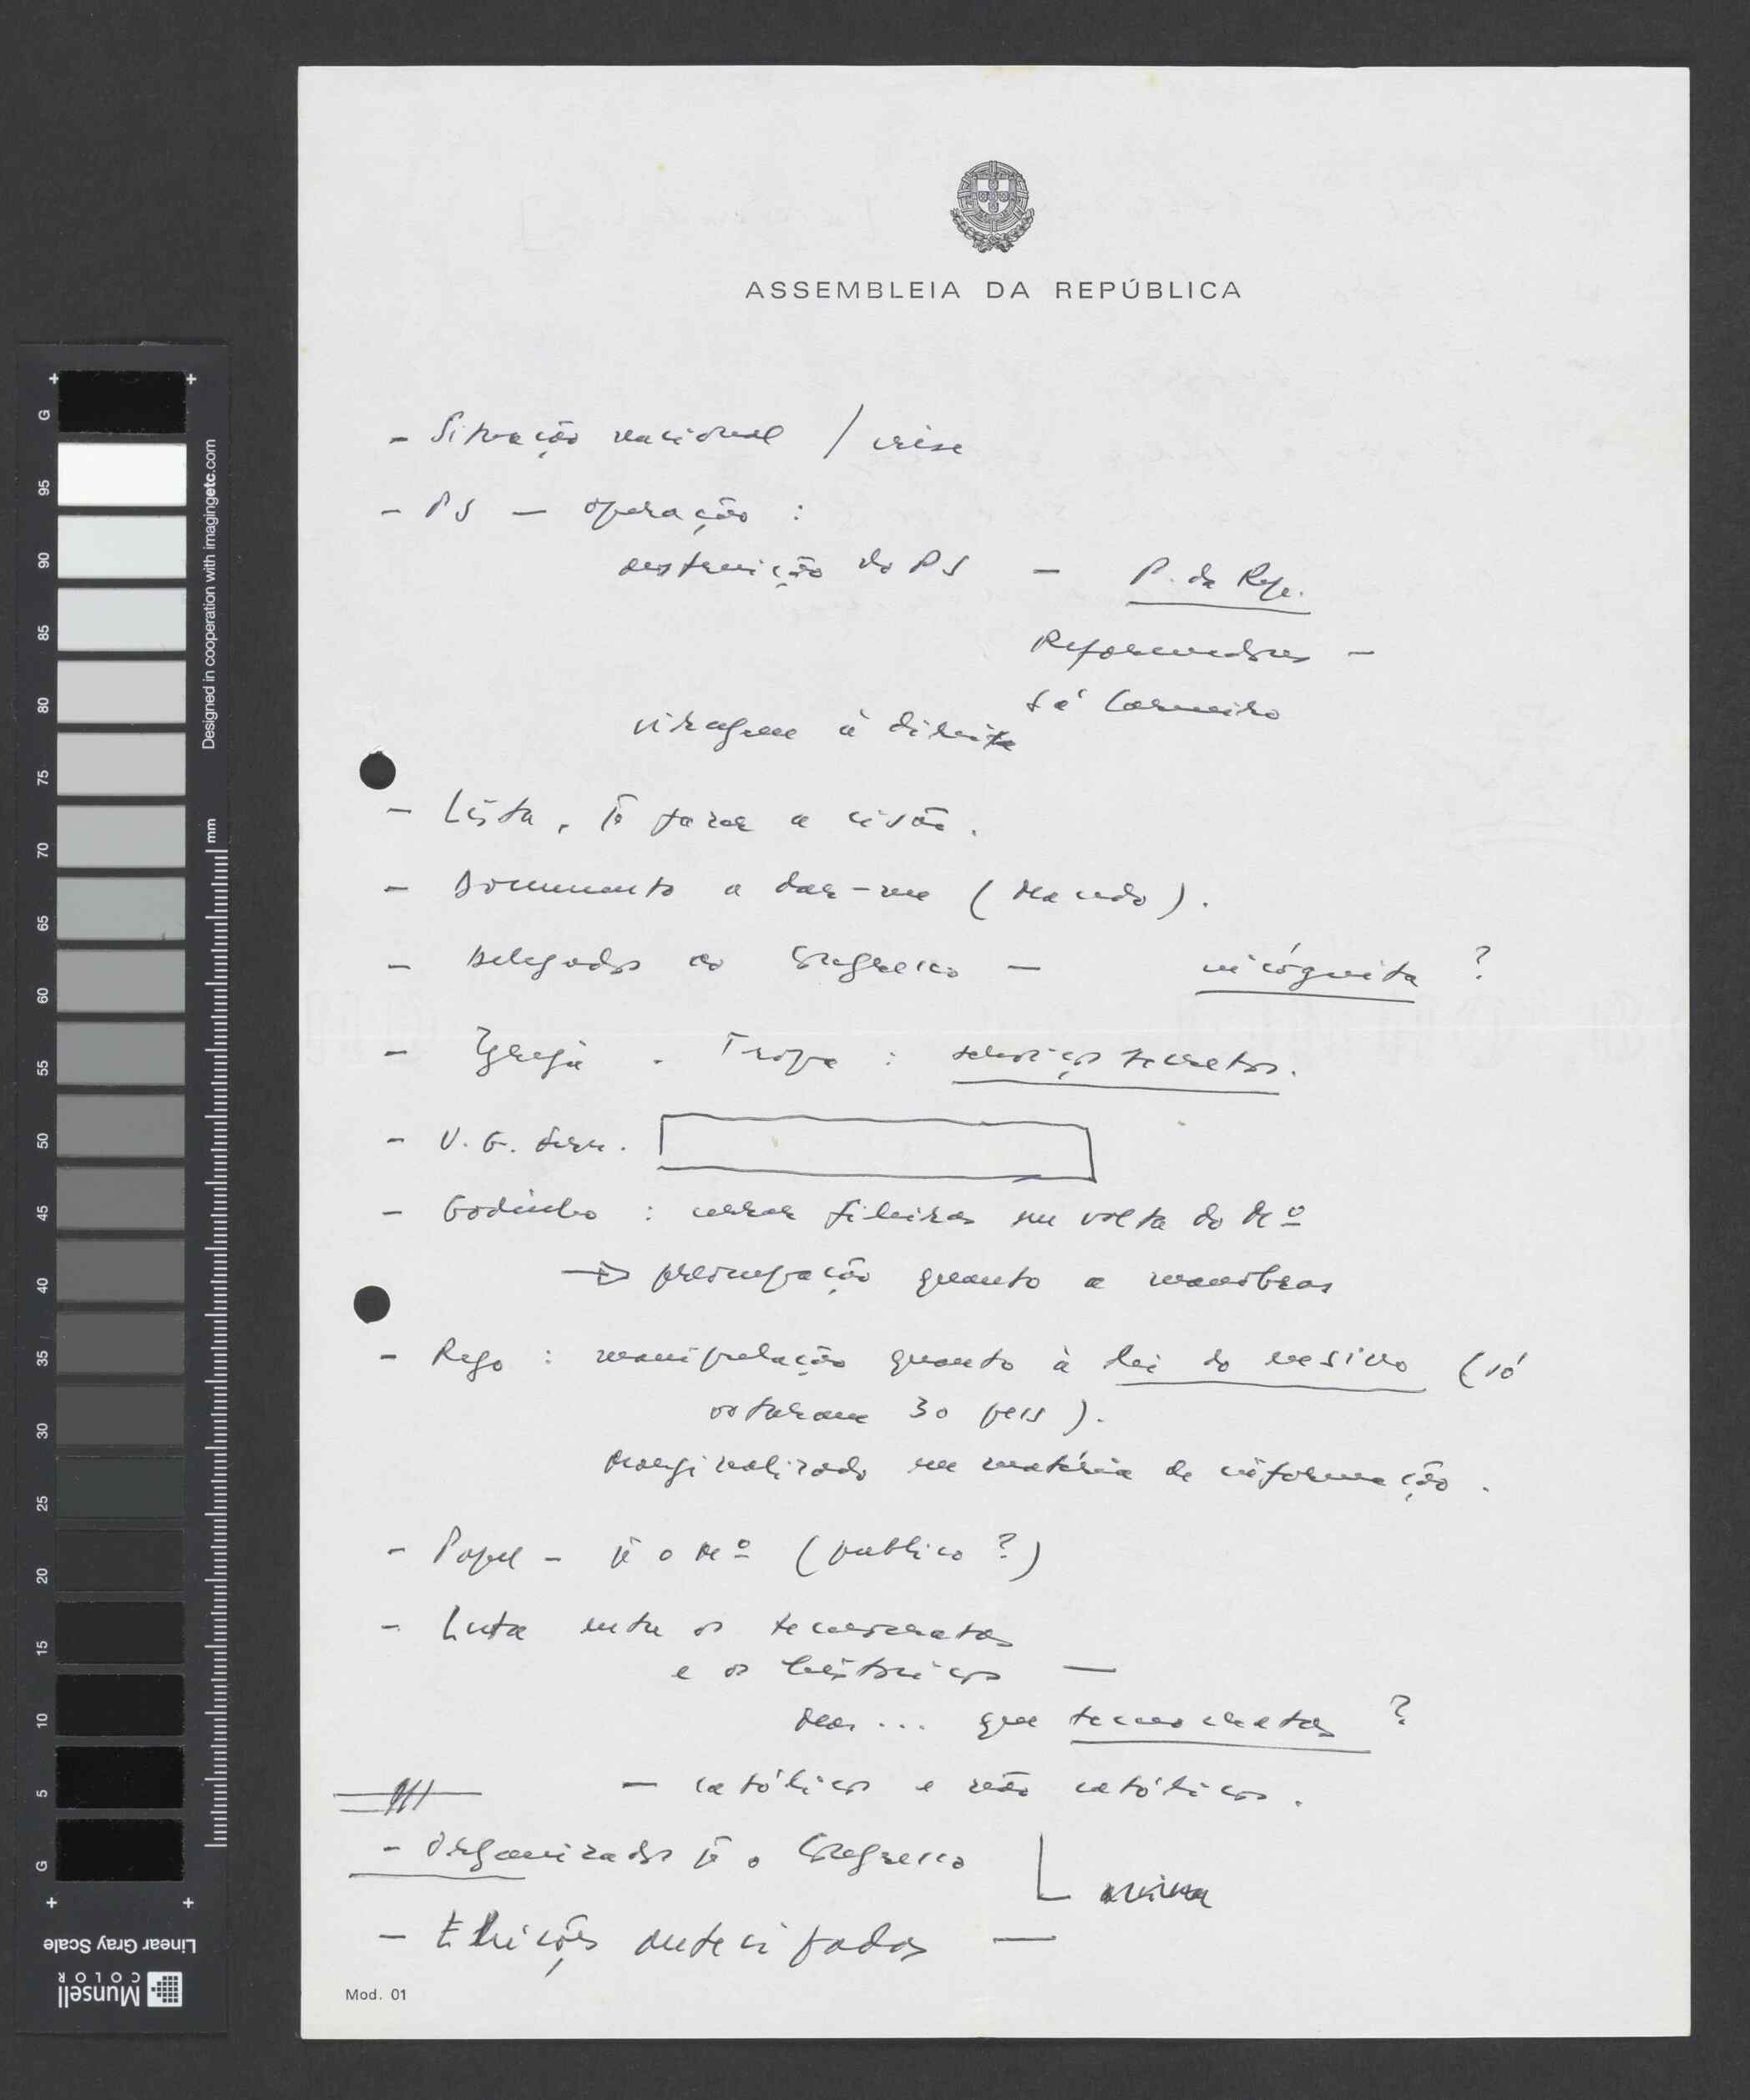 ASSEMBLEIA DA REPÚBLICA
- Situação nacional / crise
- PS — operação :
destruição do PS — P. da Rep.
Reformadores —
Sá Carneiro
viragem à direita
- Lista, p.ª fazer a cisão.
- Documento a dar-me (Macedo).
- Delegados ao Congresso — incógnita ?
- Igreja . Tropa : serviços secretos.
- V. G.
- Godinho : cerrar fileiras em volta do M.º
→ preocupação quanto a manobras
- Rego : manipulação quanto à lei do ensino (só
votaram 30 pess).
marginalizado em matéria de informação.
- Papel - p.ª o M.º (publico ?)
- Luta entre os tecnocratas
e os históricos —
Mas... que tecnocratas ?
— católicos e não católicos.
- Organizados p.ª o Congresso
- Eleições antecipadas —
Mod. 01
+ +
G
95
90
85
80
75
70
65
60
55
50
45
40
35
30
25
20
15
10
5
G
+ +
Designed in cooperation with imagingetc.com
mm
Linear Gray Scale
Munsell
COLOR